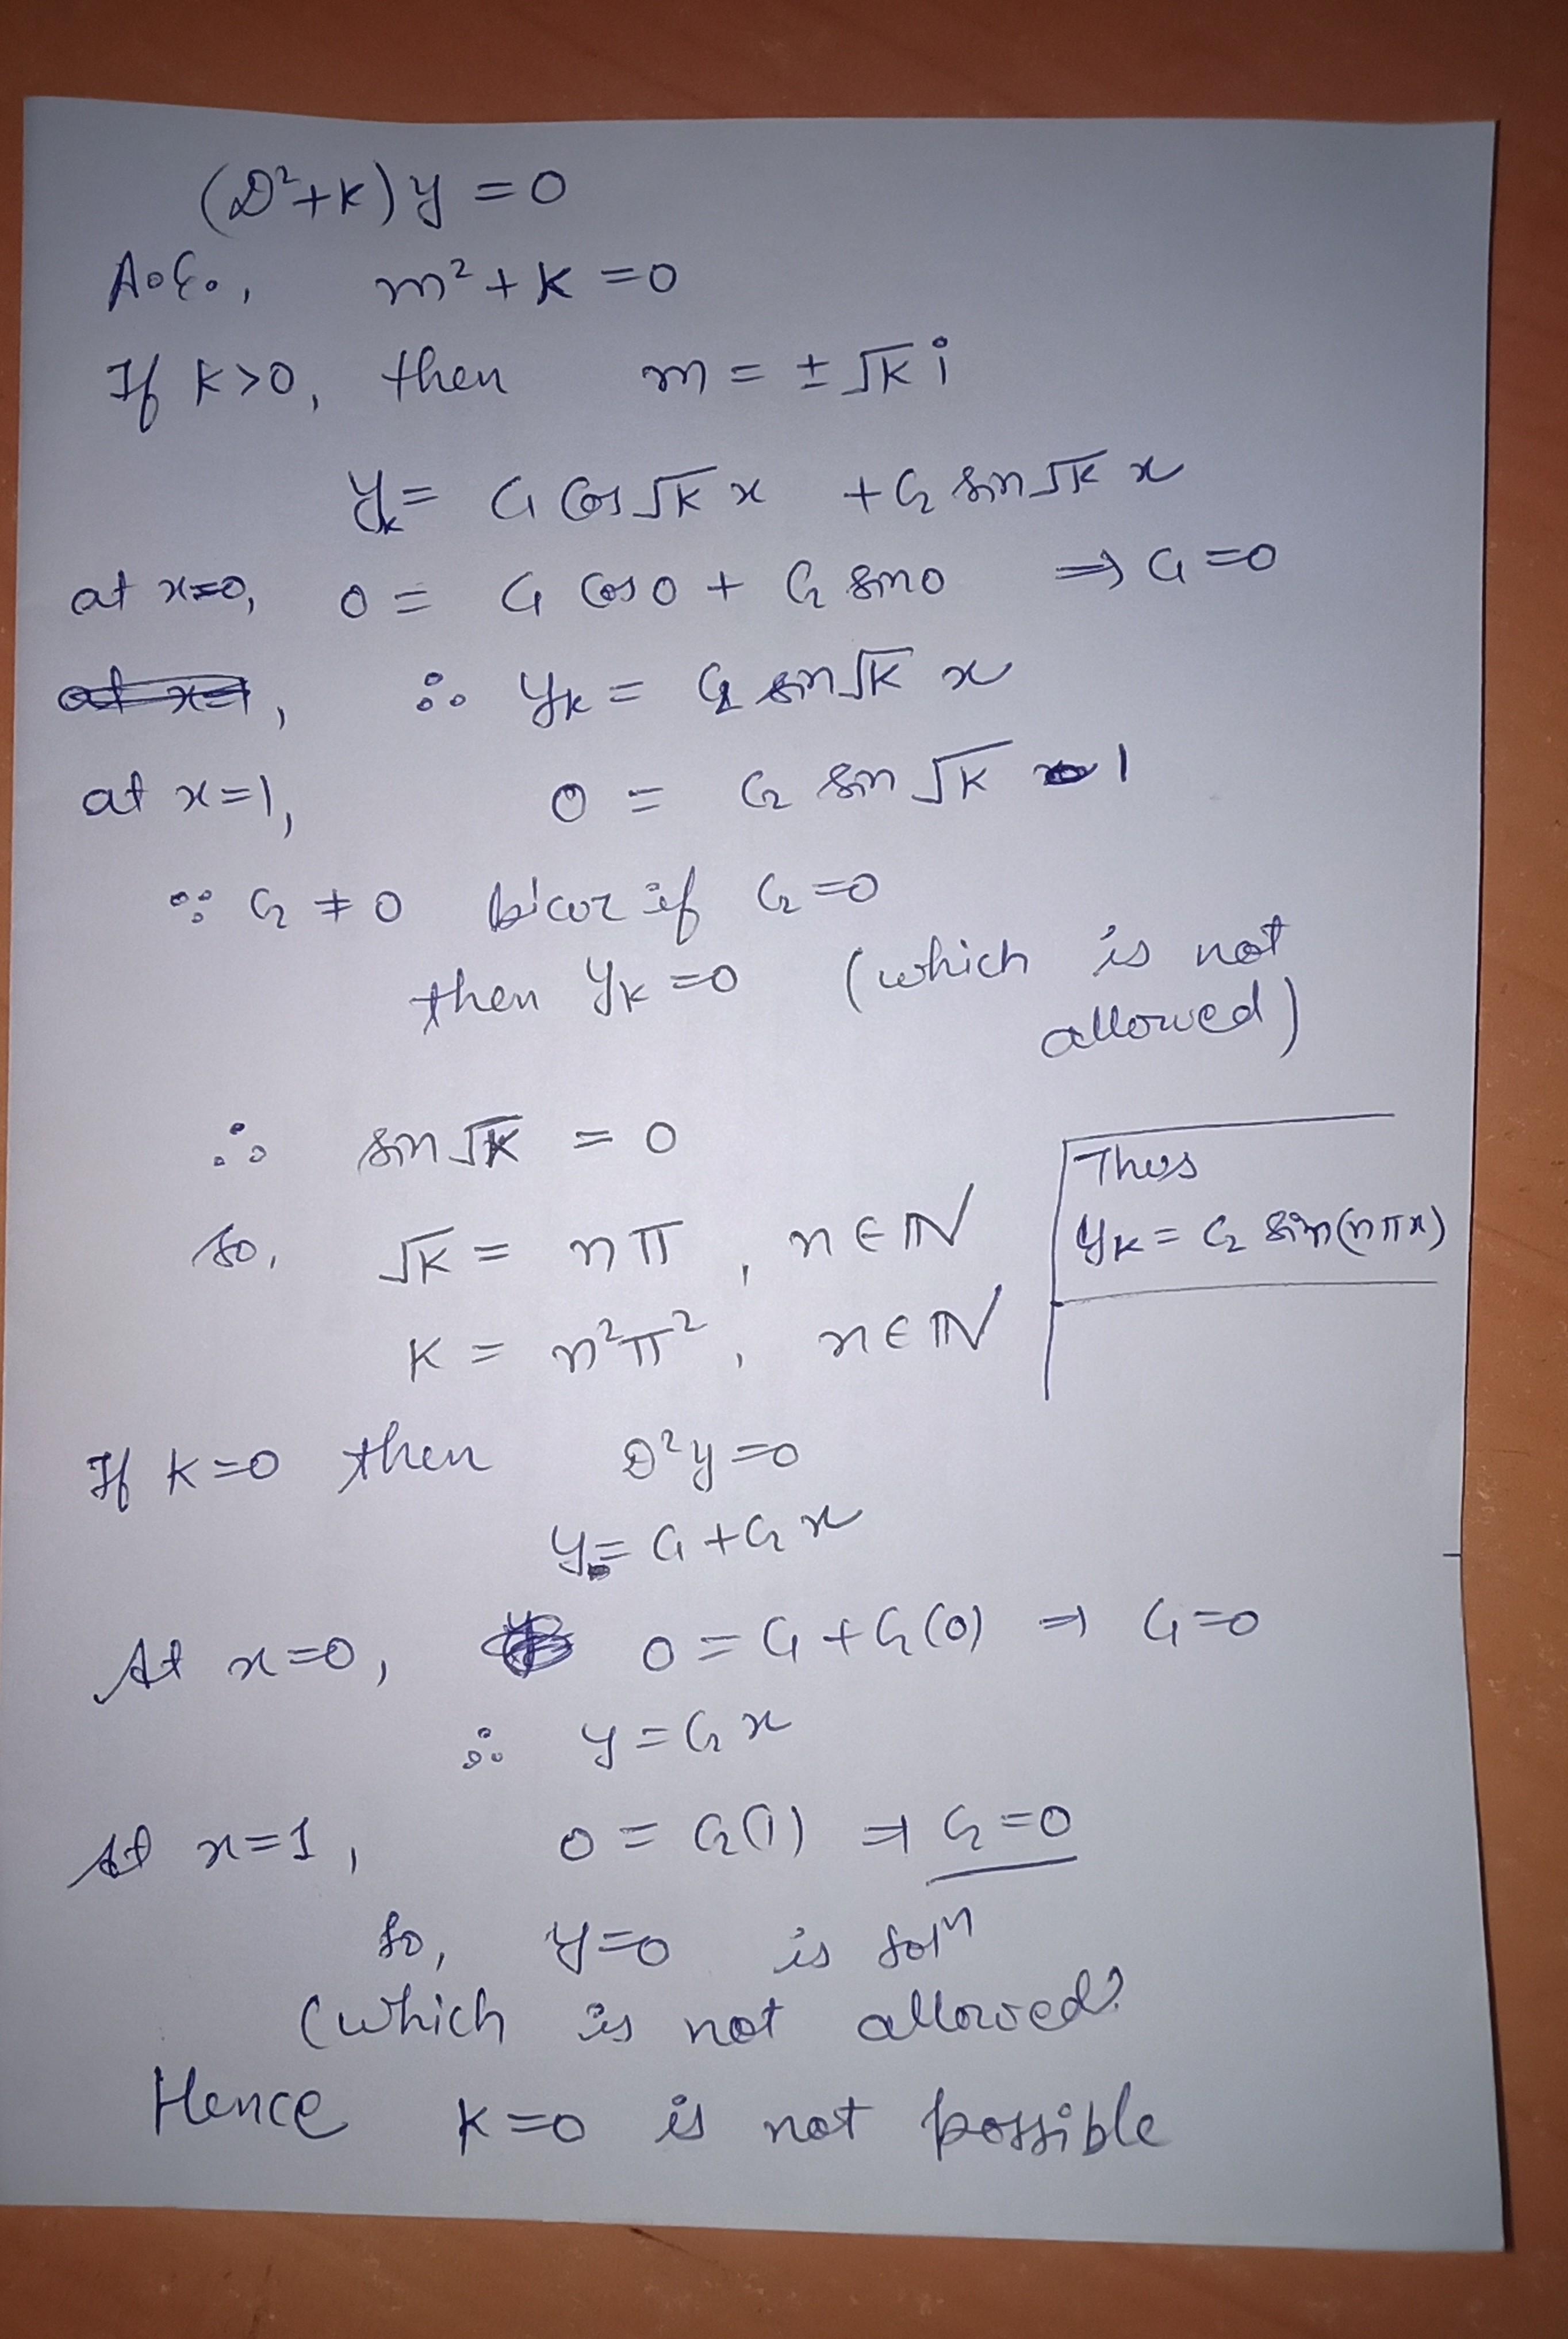 (D²+K)y = 0
A.E., m²+K = 0
If K>0, then m = ± √K i
yₖ = C₁ Cos √K x + C₂ sin √K x
at x=0, 0 = C₁ Cos 0 + C₂ sin 0 ⇒ C₁=0
∴ yₖ = C₂ sin √K x
at x=1, 0 = C₂ sin √K 1
∵ C₂ ≠ 0 b'coz if C₂=0
then yₖ=0 (which is not
allowed)
∴ sin √K = 0
so, √K = nπ , n ∈ ℕ
K = n²π² , n ∈ ℕ
Thus
yₖ = C₂ sin(nπx)
If K=0 then D²y=0
y = C₁+C₂x
At x=0, 0 = C₁+C₂(0) ⇒ C₁=0
∴ y = C₂x
At x=1, 0 = C₂(1) ⇒ C₂=0
so, y=0 is solⁿ
(which is not allowed)
Hence K=0 is not possible